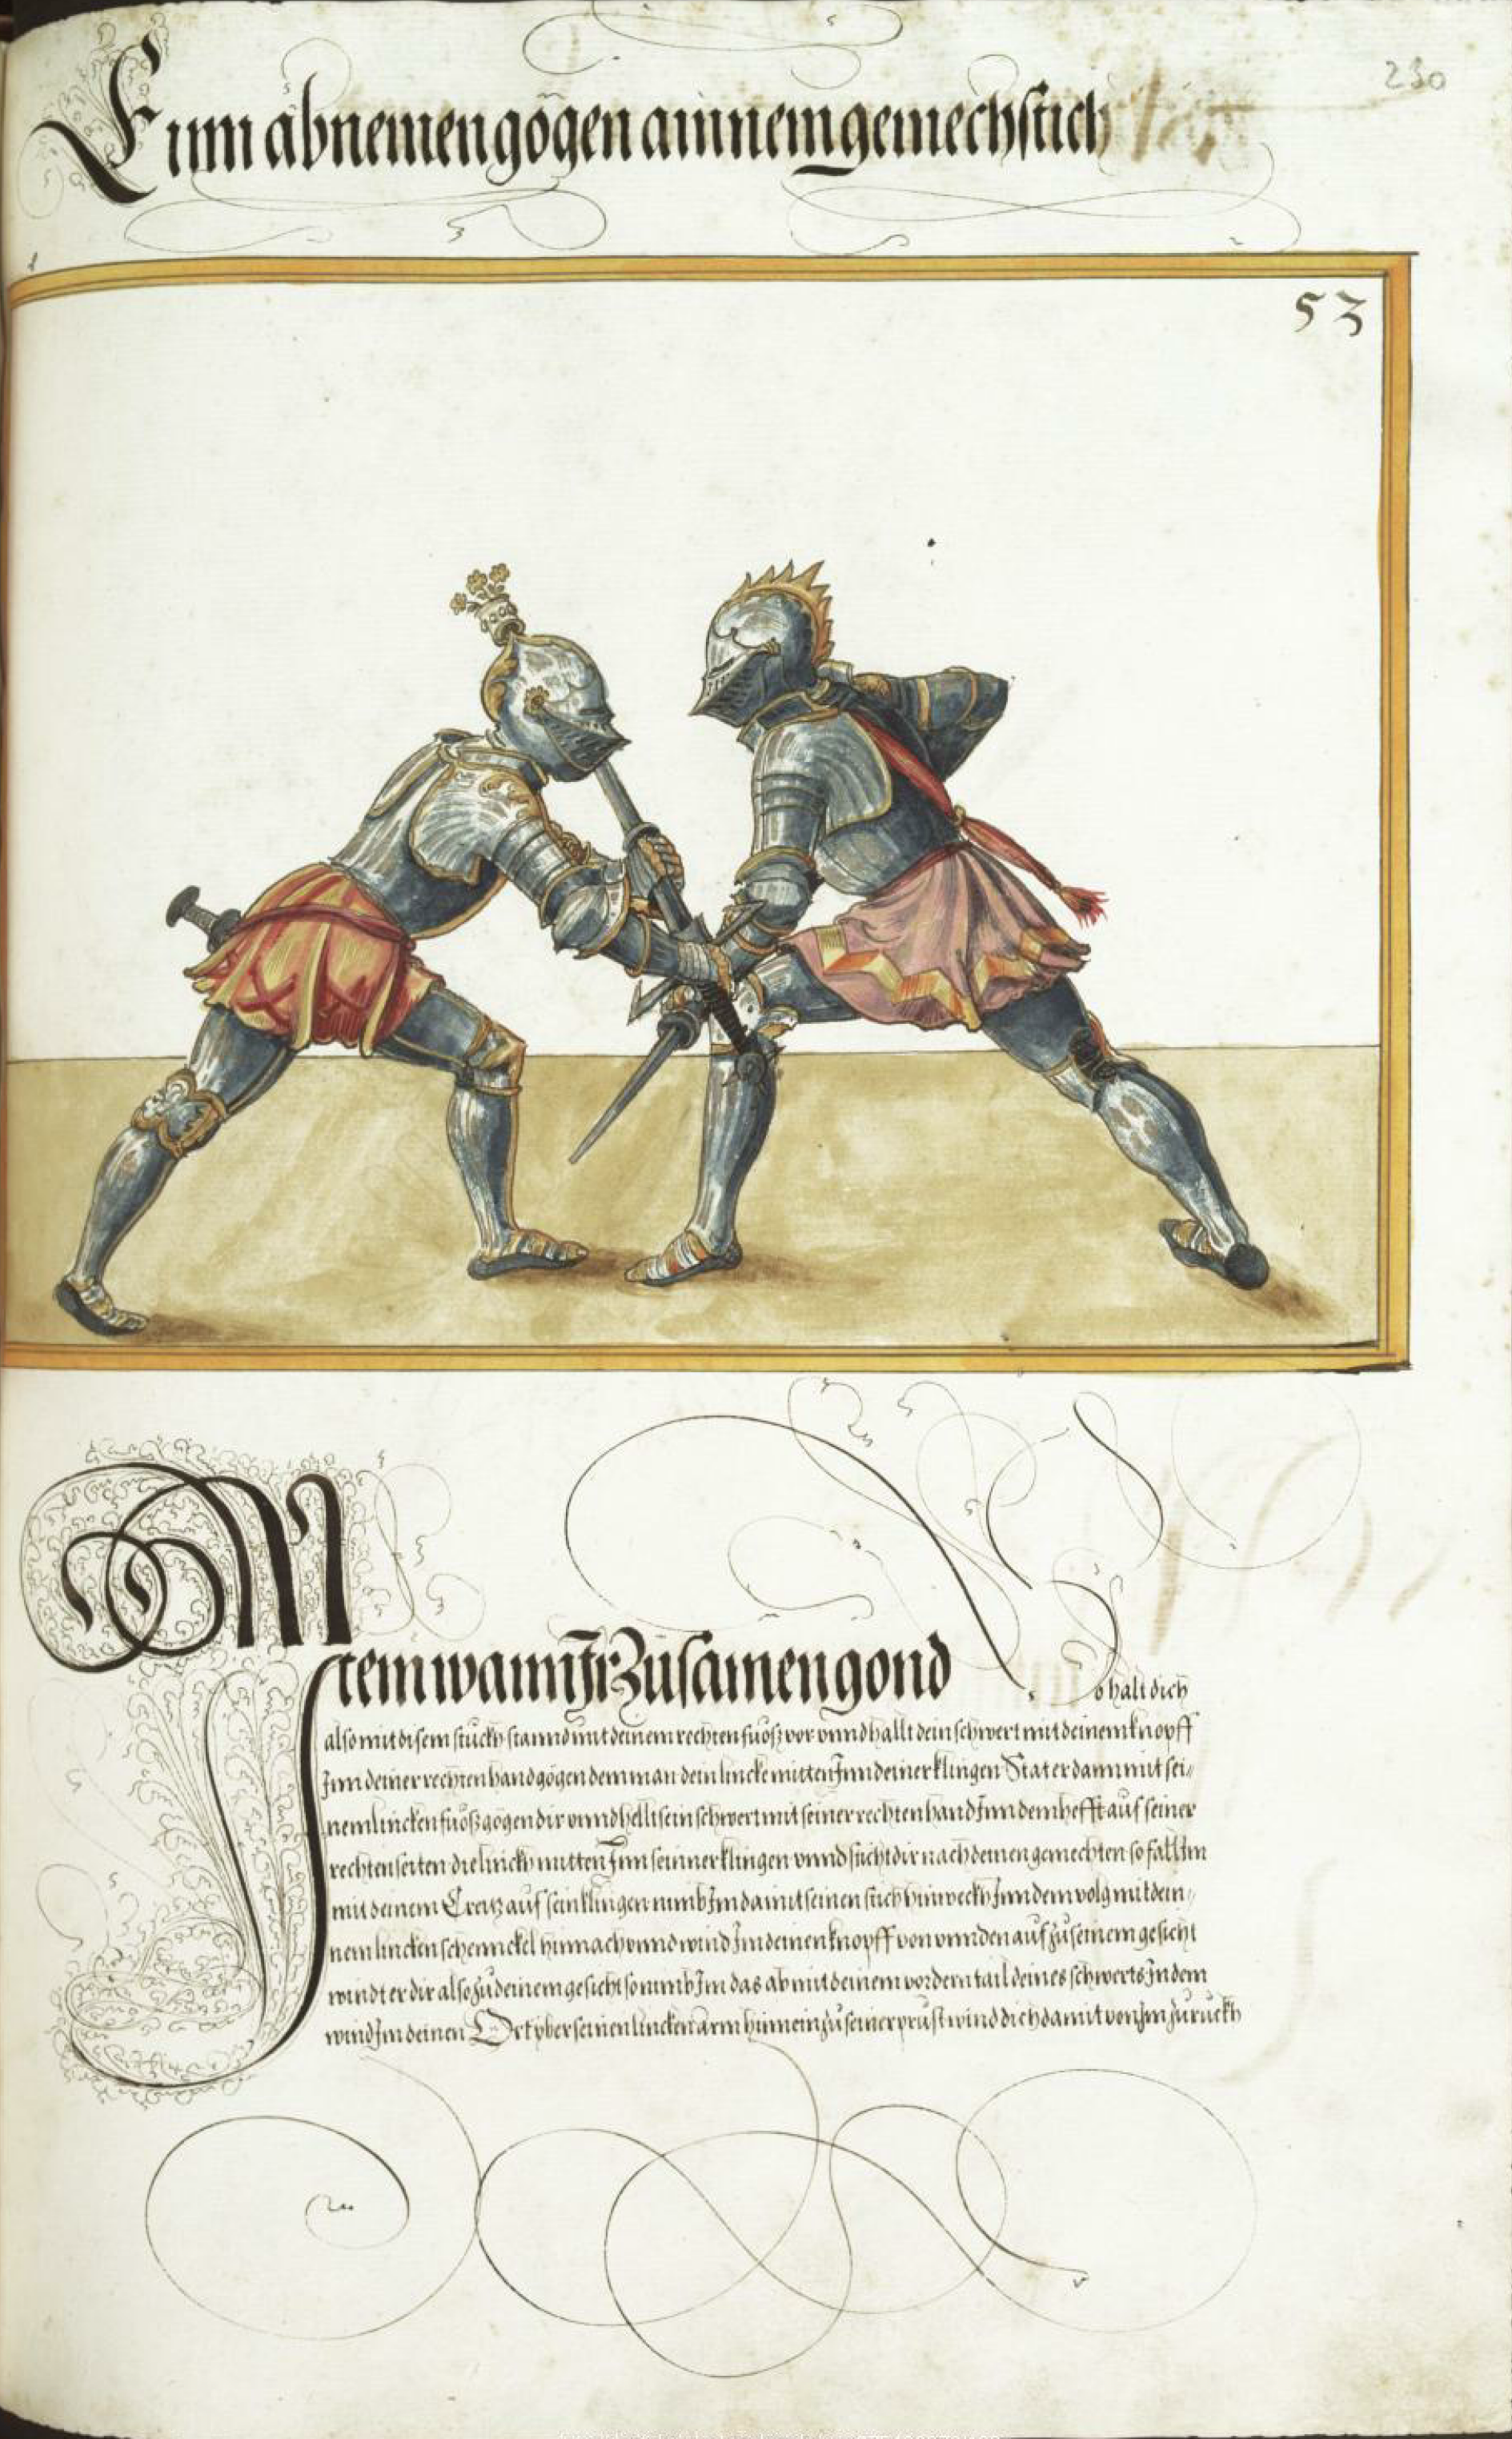 230
Einn äbnemen gögen ainnem gemechstich
53
Item wann Ir Zusamen gond So halt dich
also mit disem stuckh stannd mit deinem rechten fuoß vor vnnd hallt dein schwert mit deinem knopff
Inn deiner rechten hand gögen dem man dein lincke mitten Inn deiner klingen Stat er dann mit sei„
nem lincken fuoß gögen dir vnnd hellt sein schwert mit seiner rechten hand Inn dem hefft auf seiner
rechten seiten die linckh mitten Inn seinner klingen vnnd sticht dir nach deinen gemechten so fall Im
mit deinem Creitz auf sein klingen nimb Im damit seinen stich hinweckh Inn dem volg mit dein„
nem lincken schennckel hinnach vnnd wind Im deinen knopff von vnnden auf zu seinem gesicht
windt er dir also zu deinem gesicht so nimb Im das ab mit deinem vordern tail deines schwerts In dem
wind Im deinen Ort yber seinen lincken arm hinnein zu seiner prust wind dich damit von Im zuruckh